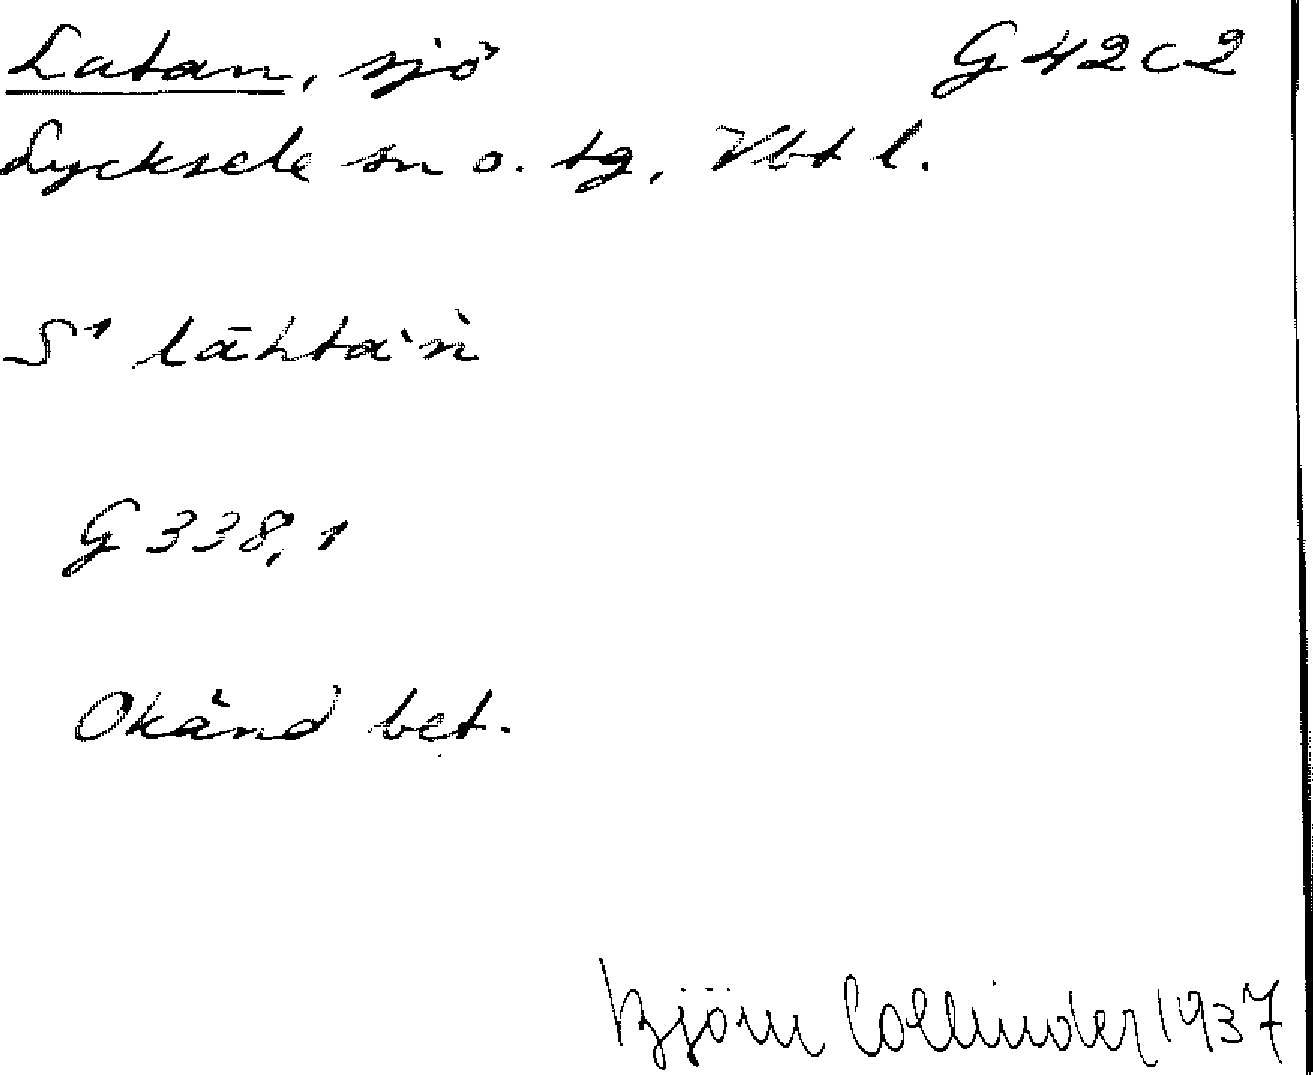 Latan, sjö G 42 c 2
Lycksele sn o. tg, Vbt l.
S¹ lāhta`ǹ
G 338,1
Okänd bet.
Björn Collinder 1937